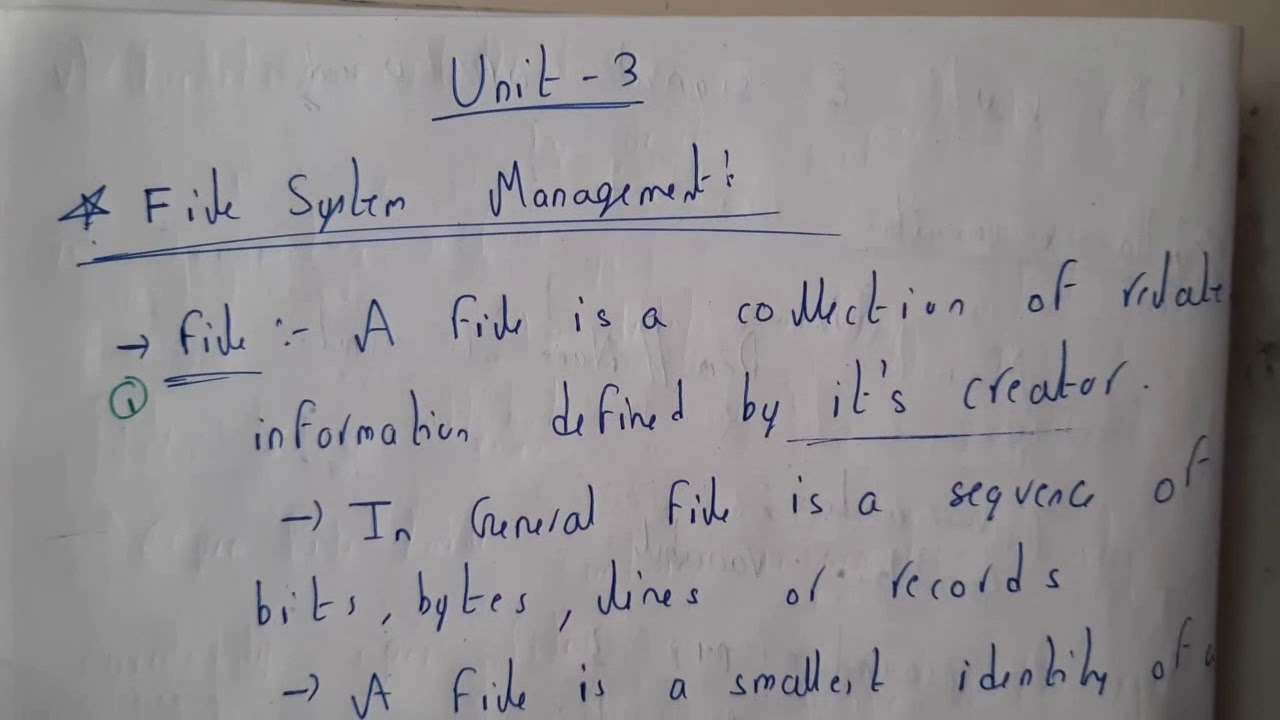 Unit - 3
* File System Management:
→ File :- A File is a collection of relate
① information defined by it's creator.
→ In General File is a sequence of
bits, bytes, lines or records
→ A File is a smallest identity of a